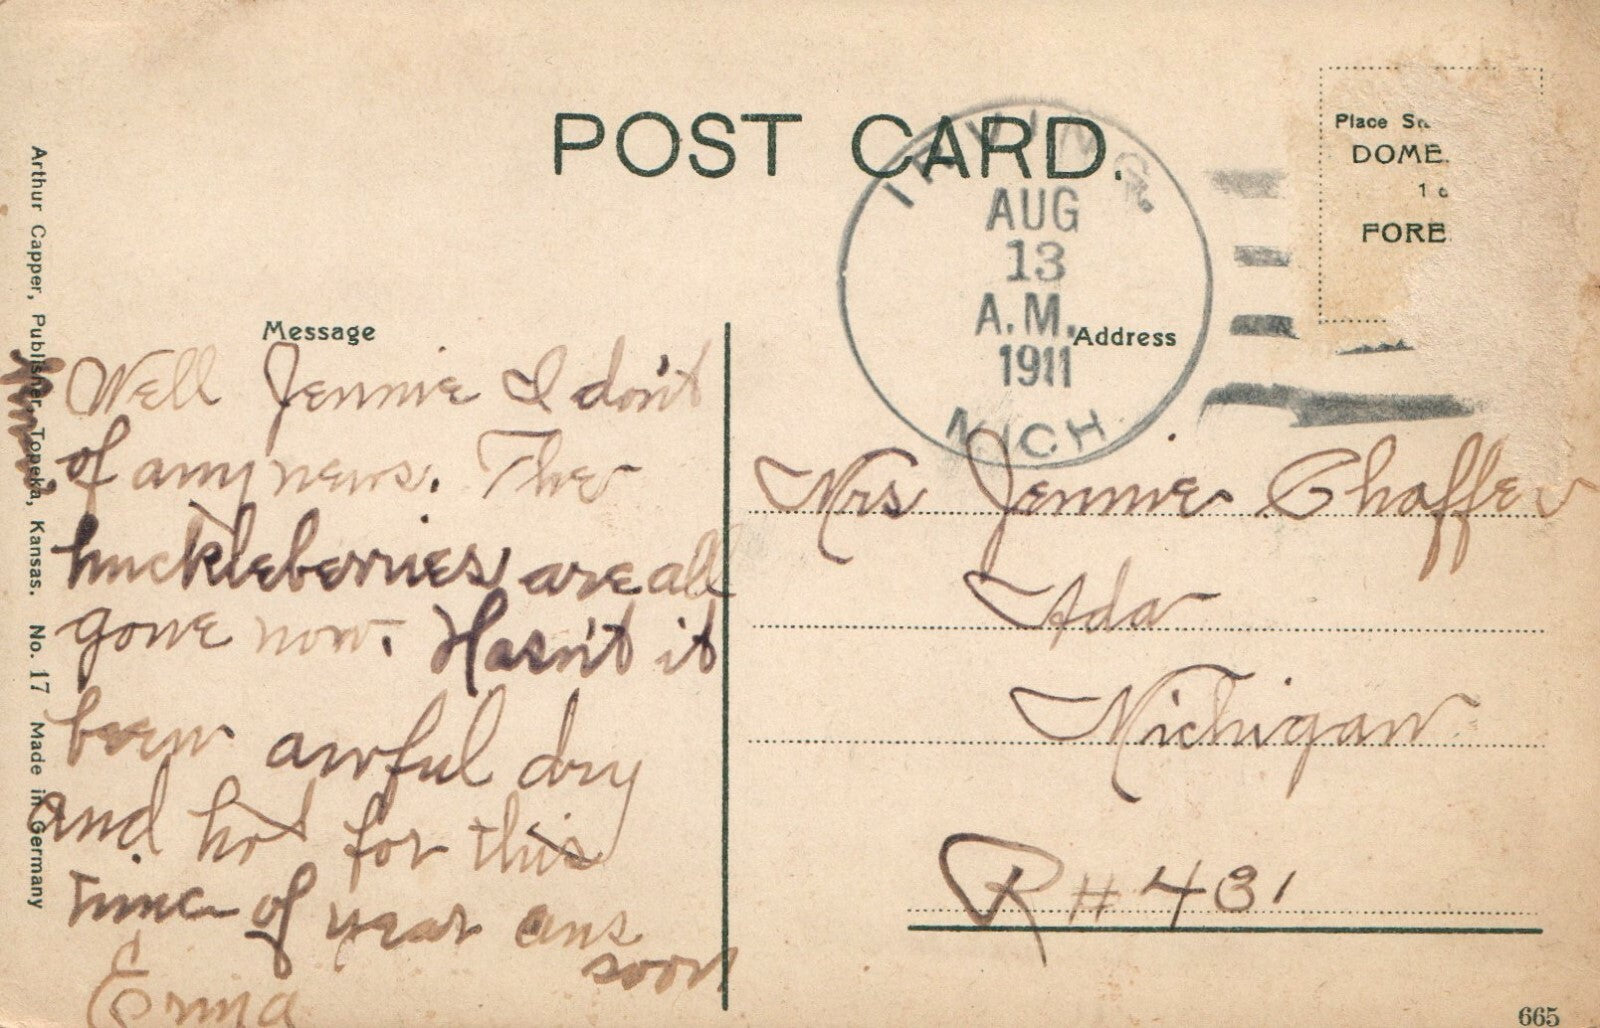 POST CARD.
IRVING.
AUG
13
A.M.
1911
MICH.
Place
DOME
1 c
FORE
Message
Address
Well Jennie I don't
of any news. The
huckleberries are all
gone now. Hasn't it
been awful dry
and hot for this
time of year ans
soon
Erma
Mrs Jennie Chaffee
Ada
Michigan
R # 431
Arthur Capper, Publisher, Topeka, Kansas. No. 17 Made in Germany
665